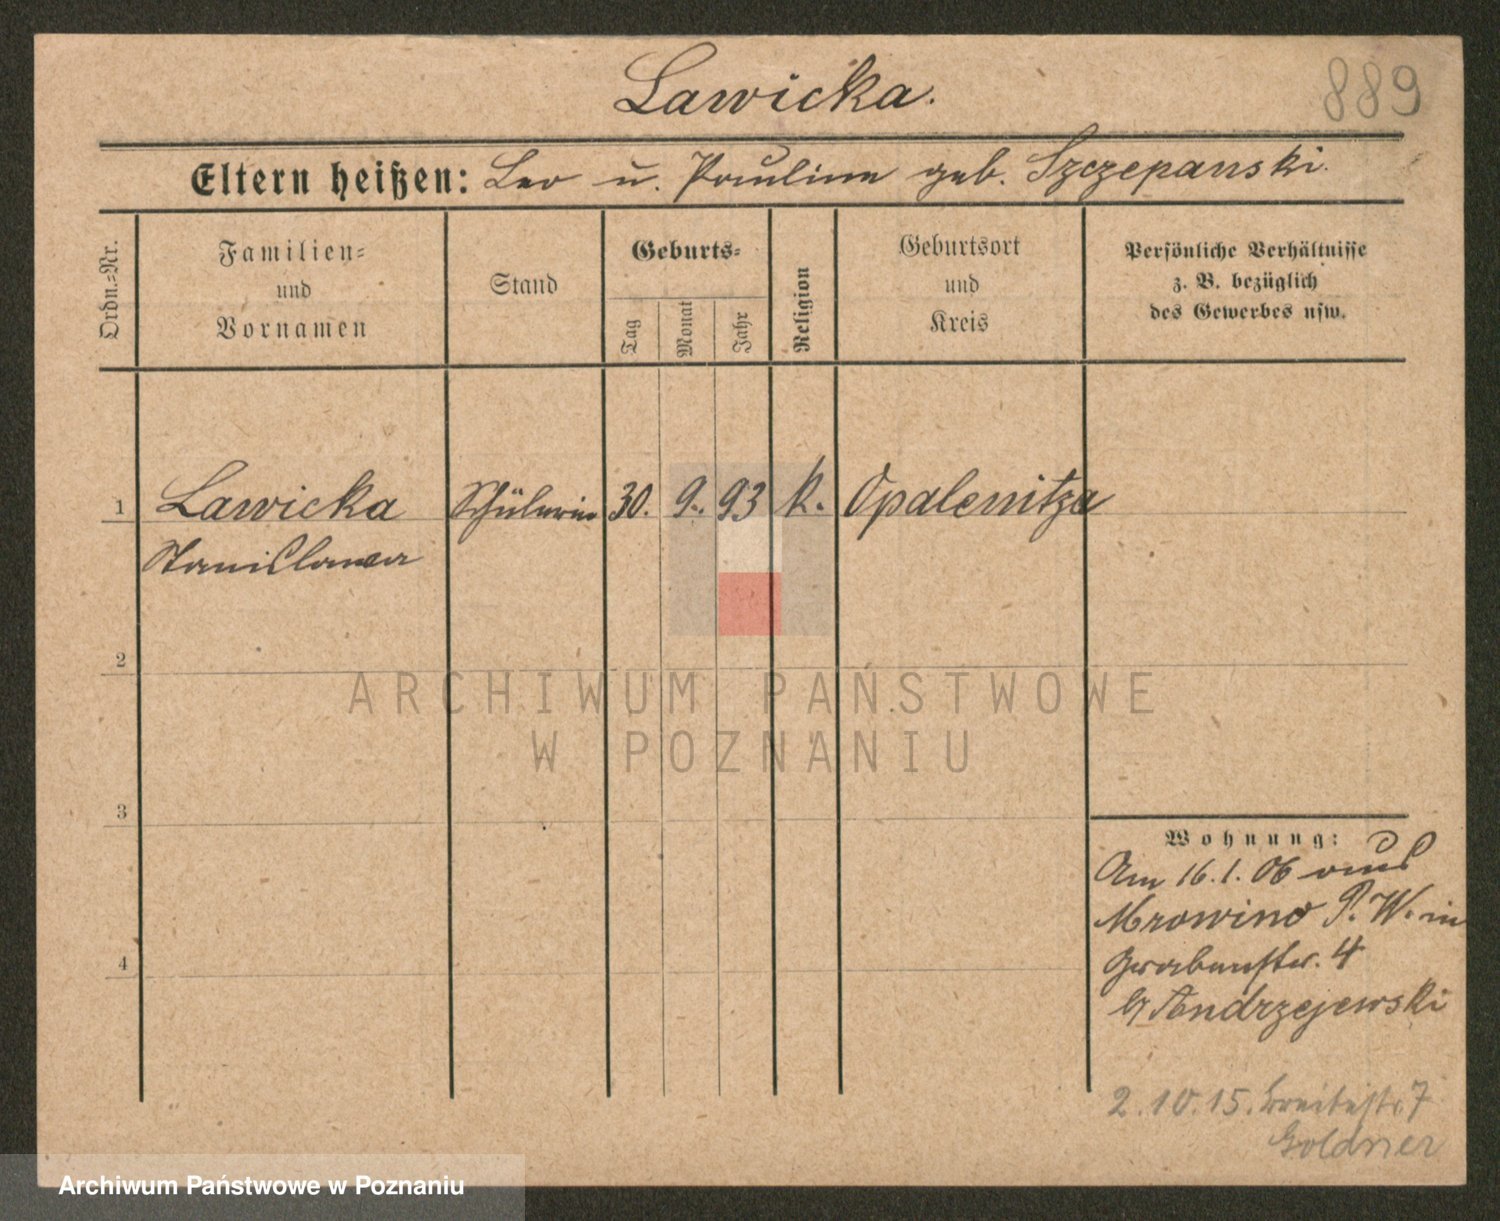 Lawicka.
889
Eltern heißen: Leo u. Pauline geb. Szczepanski.
Ordn.=Nr.
Familien=
und
Vornamen
Stand
Geburts=
Tag
Monat
Jahr
Religion
Geburtsort
und
Kreis
Persönliche Verhältnisse
z. B. bezüglich
des Gewerbes usw.
1 Lawicka Schülerin 30. 9. 93 k. Opalenitza
Stanislawa
2
ARCHIWUM PAŃSTWOWE
W POZNANIU
3
Wohnung:
Am 16.1.06 aus
Mrowino P. W. in
Grabenstr. 4
b/ Andrzejewski
4
2.10.15. Breitestr. 7
Goldner
Archiwum Państwowe w Poznaniu